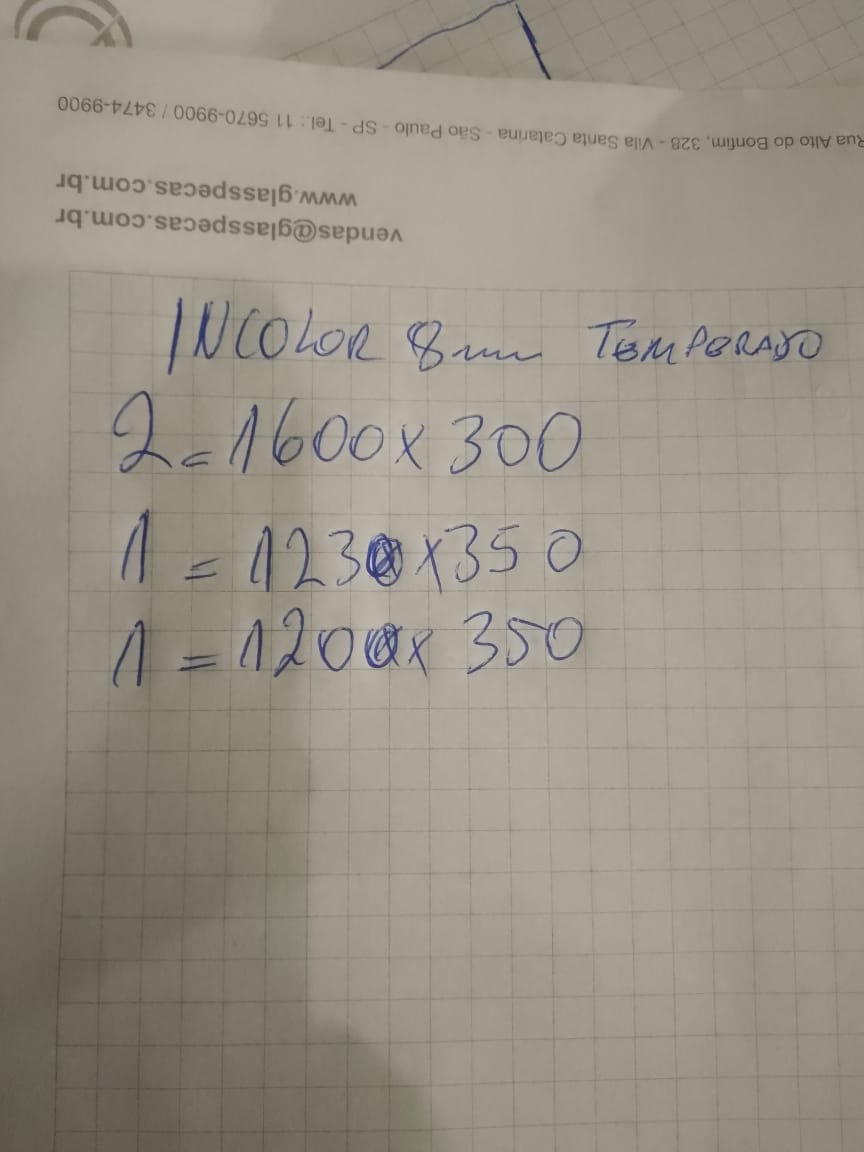 Rua Alto do Bonfim, 328 - Vila Santa Catarina - São Paulo - SP - Tel.: 11 5670-9900 / 3474-9900
www.glasspecas.com.br
vendas@glasspecas.com.br
INCOLOR 8mm TEMPERADO
2=1600x300
1=1230x350
1=1200x350